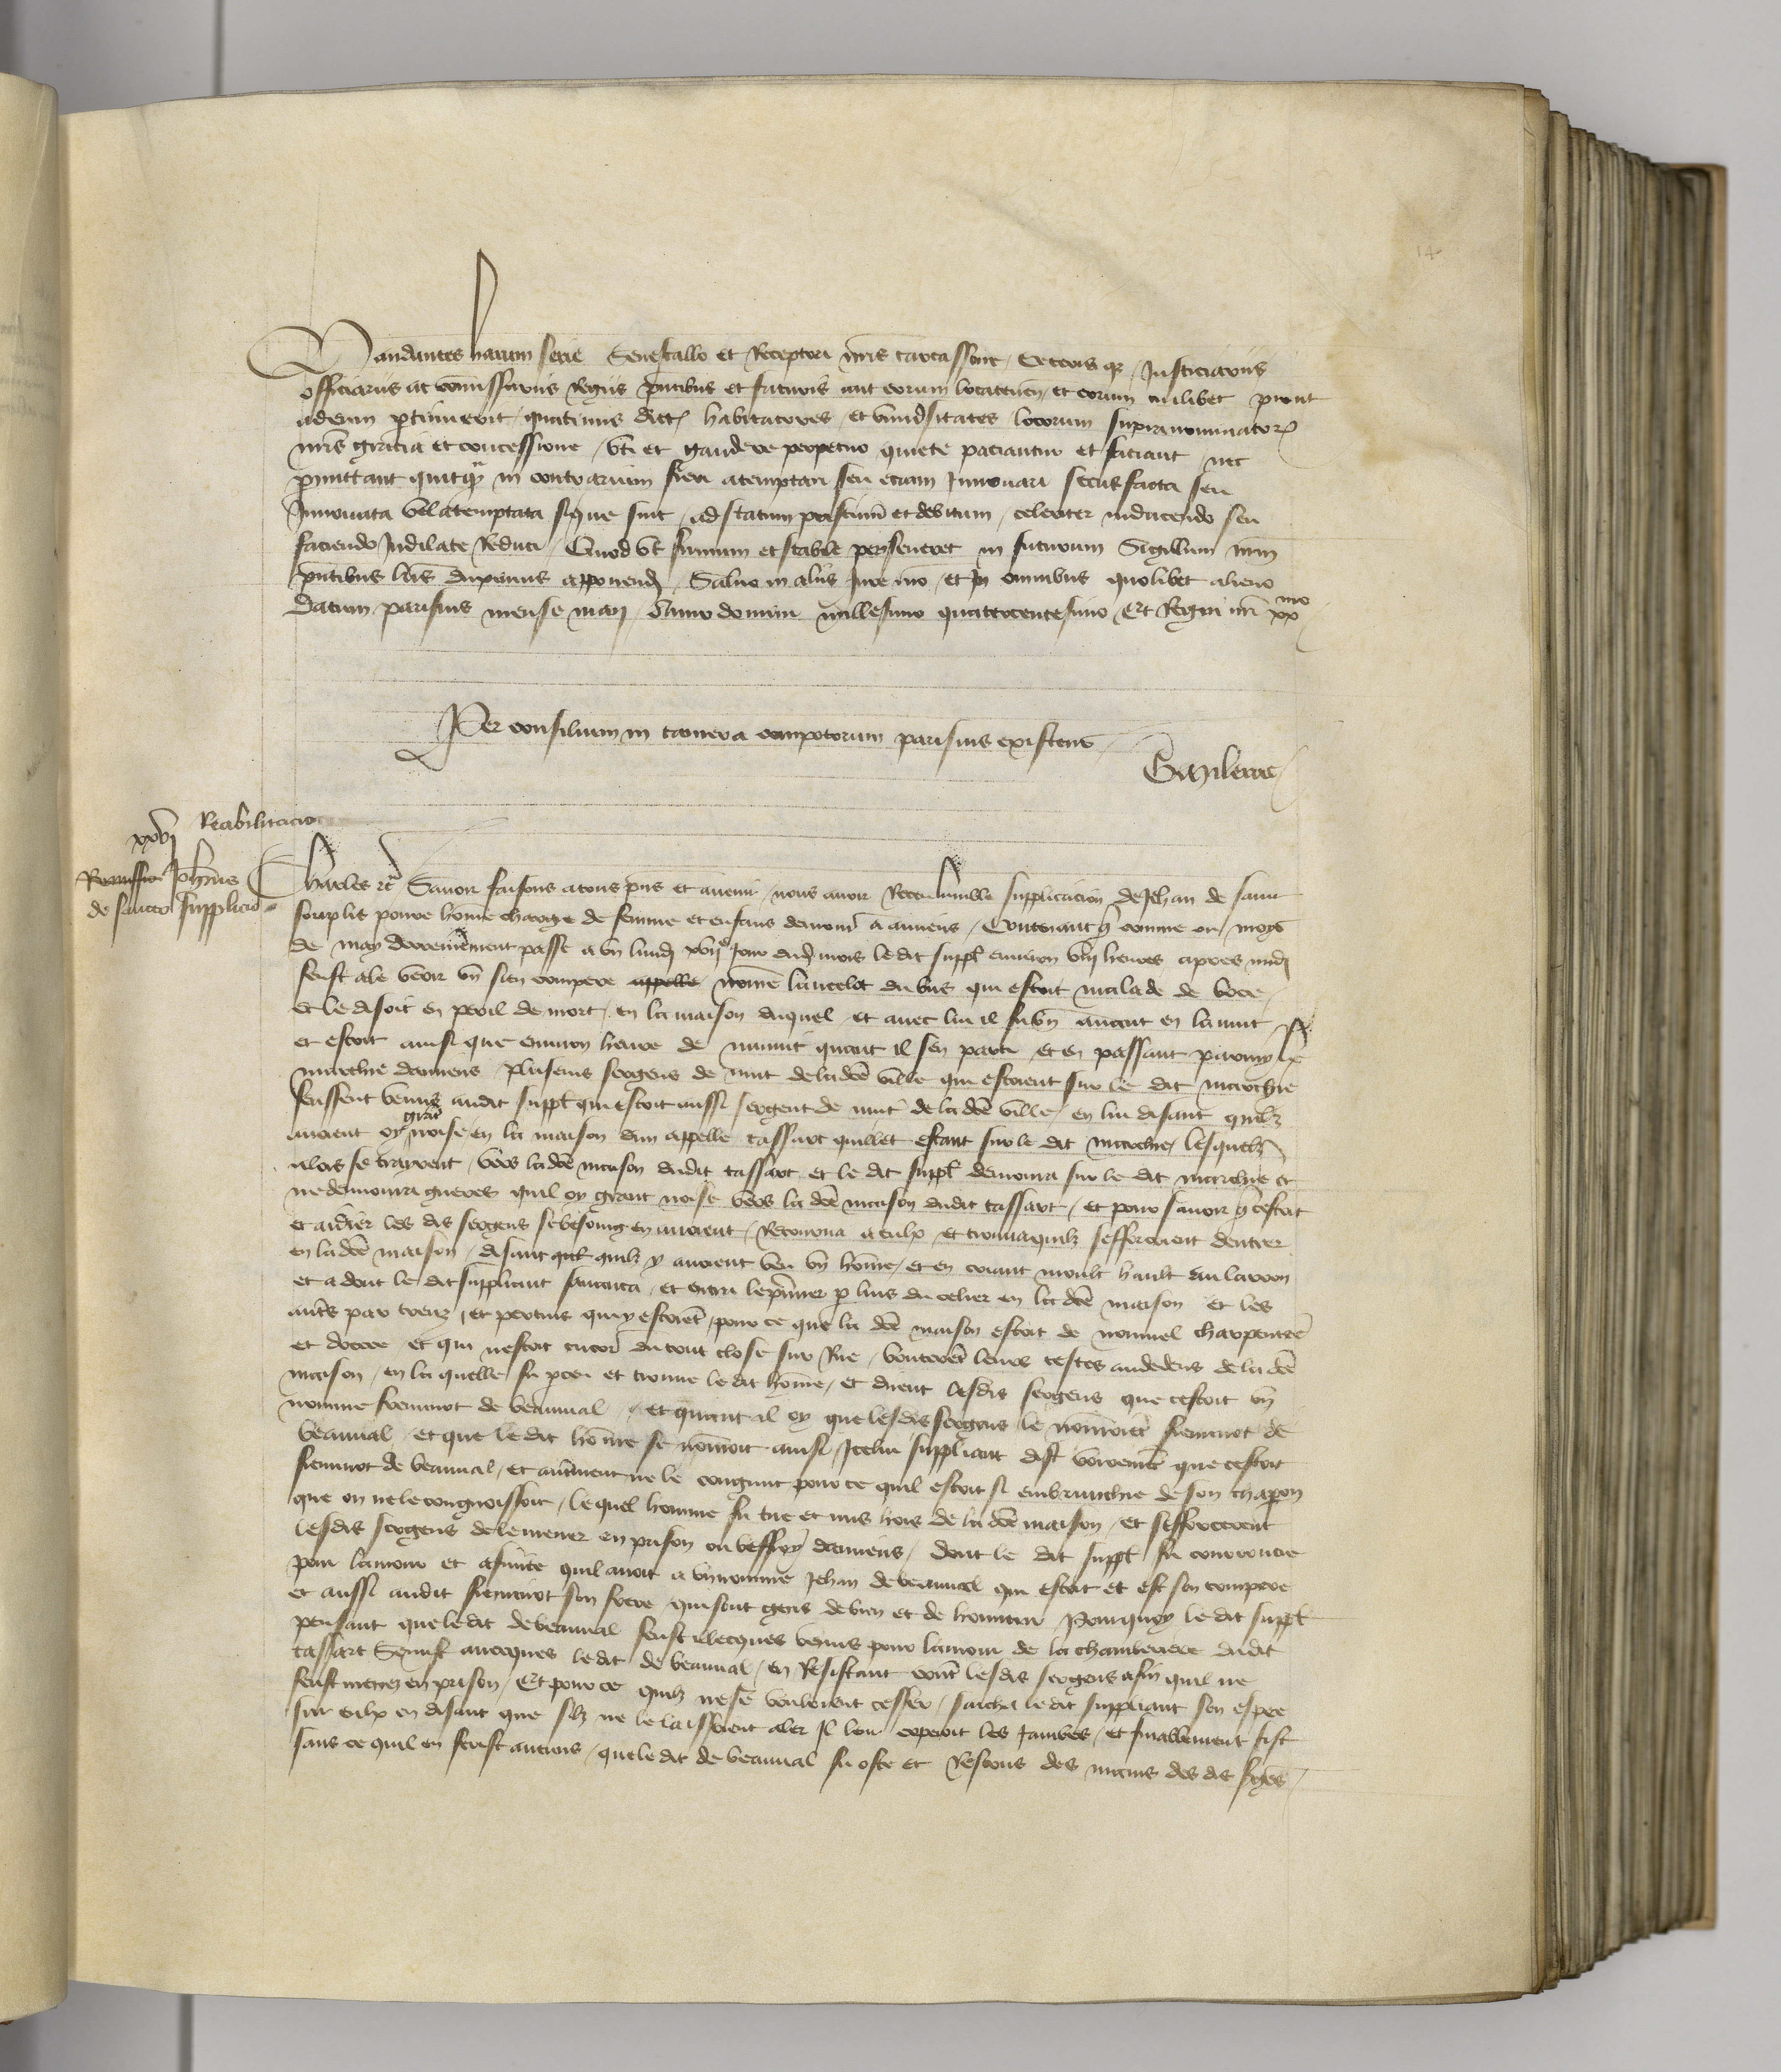 14
Mandantes harum serie Senescallo et Receptori nris carcassone Ceterisqz Justiciariis
officiariis ac comissariis Regiis pntibus et futuris aut eorum locatenen et eorum cuilibet prout
ad eum ptinuerit quatinus dictos habitatores et universitates locorum supranominator
nris gracia et concessione uti et gaudere perpetuo quiete paciantur et faciant nec
pmittant quitqz in contrarium fieri atemptari seu eciam Innovari Secus facta seu
Innovata vel atemptata si que sint ad statum pristinu et debitum celeriter reducendo seu
faciendo Indilate Reduci Quod ut firmum et stabile perseveret in futurum Sigillum nrm
pntibus lris duximus apponend Salvo in aliis Jure nro et In omnibus quolibet alieno
Datum parisius mense maii Anno domini millesimo quatercentesimo Et Regni nri xx mo
Per consilium in camera compotorum parisius existens
Gaulerac
xxvj Reabilitacio
Remissio Johannis
de sancto supplicio
Charles etc Savoir faisons a tous pns et avenir nous avoir Receu humble supplicacion de Jehan de saint
souplis povre home chargie de femme et enfans demour a amiens Contenant q comme ou moys
de may derreniement passe a un lundi xvij e Jour dud mois le dit suppl environ viij heures apres midi
feust ale veoir un sien compere appelle nomé lancelot du bus qui estoit malade de boce
et le disoit en peril de mort en la maison duquel et avec lui il fu avant en la nuit
et estoit ainsi que environ heure de minuit quant il sen parti et en passant parmy le
marchie damiens plusieurs sergens de nuit de lad ville qui estoient sur le dit marchie
feussent venus audit suppl qui estoit aussi sergent de nuit de lad ville en lui disant quilz
avoient oy grant noise en la maison dun appelle tassart quillet estant sur le dit marchie lesquelz
alors se trairent vers lad maison dudit tassart et le dit suppl demoura sur le dit marchie et
ne demoura gueres quil oy grant noise vers la d maison dudit tassart et pour savoir q cestoit
et aidier les dis sergens se besoing en avoient Retourna a eulx et trouva quilz sefforcoient dentrer
en lad maison disant quilz y avoient veu un home et en criant moult hault au larron
et adont le dit suppliant saicata et entra le pmier p luis du celier en la d maison et les
auts par trous et pertuis qui y estoiet pour ce que la d maison estoit de nouvel charpentee
et doree et qui nestoit encor du tout close sur Rue bouteret leurs testes audedens de lad
maison en la quelle fu pceu et trouve le dit home et dirent lesdis sergens que cestoit un
nomme freminot de beauval et quant al oy que lesdis sergens le nomoiet freminot de
beauval et que le dit home se nomoit ainsi Icelui suppliant dist vrayemt que cestoit
freminot de beauval et autment ne le congnut pour ce quil estoit si embrunchie de son chapon
que on ne le congnoissoit lequel homme fu tire et mis hors de la d maison et sefforcerent
lesdis sergens de le mener en prison ou beffroy damiens dont le dit suppl fu courroucie
pour lamour et afinite quil avoit a un nomme Jehan de beauval qui estoit et est son compere
et aussi audit freminot son frere qui sont gens de bien et de honneur Pourquoy le dit suppl
pensant que le dit de beauval feust illecques venus pour lamour de la chamberiere dudit
tassart Senist avecques le dit de beauval en Resistant cont lesdis sergens afin quil ne
feust menez en prison Et pour ce quilz ne se vouloient cesser saicha le dit suppliant son espee
sur eulx en disant que silz ne le laissoient aler Il leur coperoit les Jambes et finablement fist
sans ce quil en ferist aucuns que le dit de beauval fu oste et Rescous des mains des dis sgens